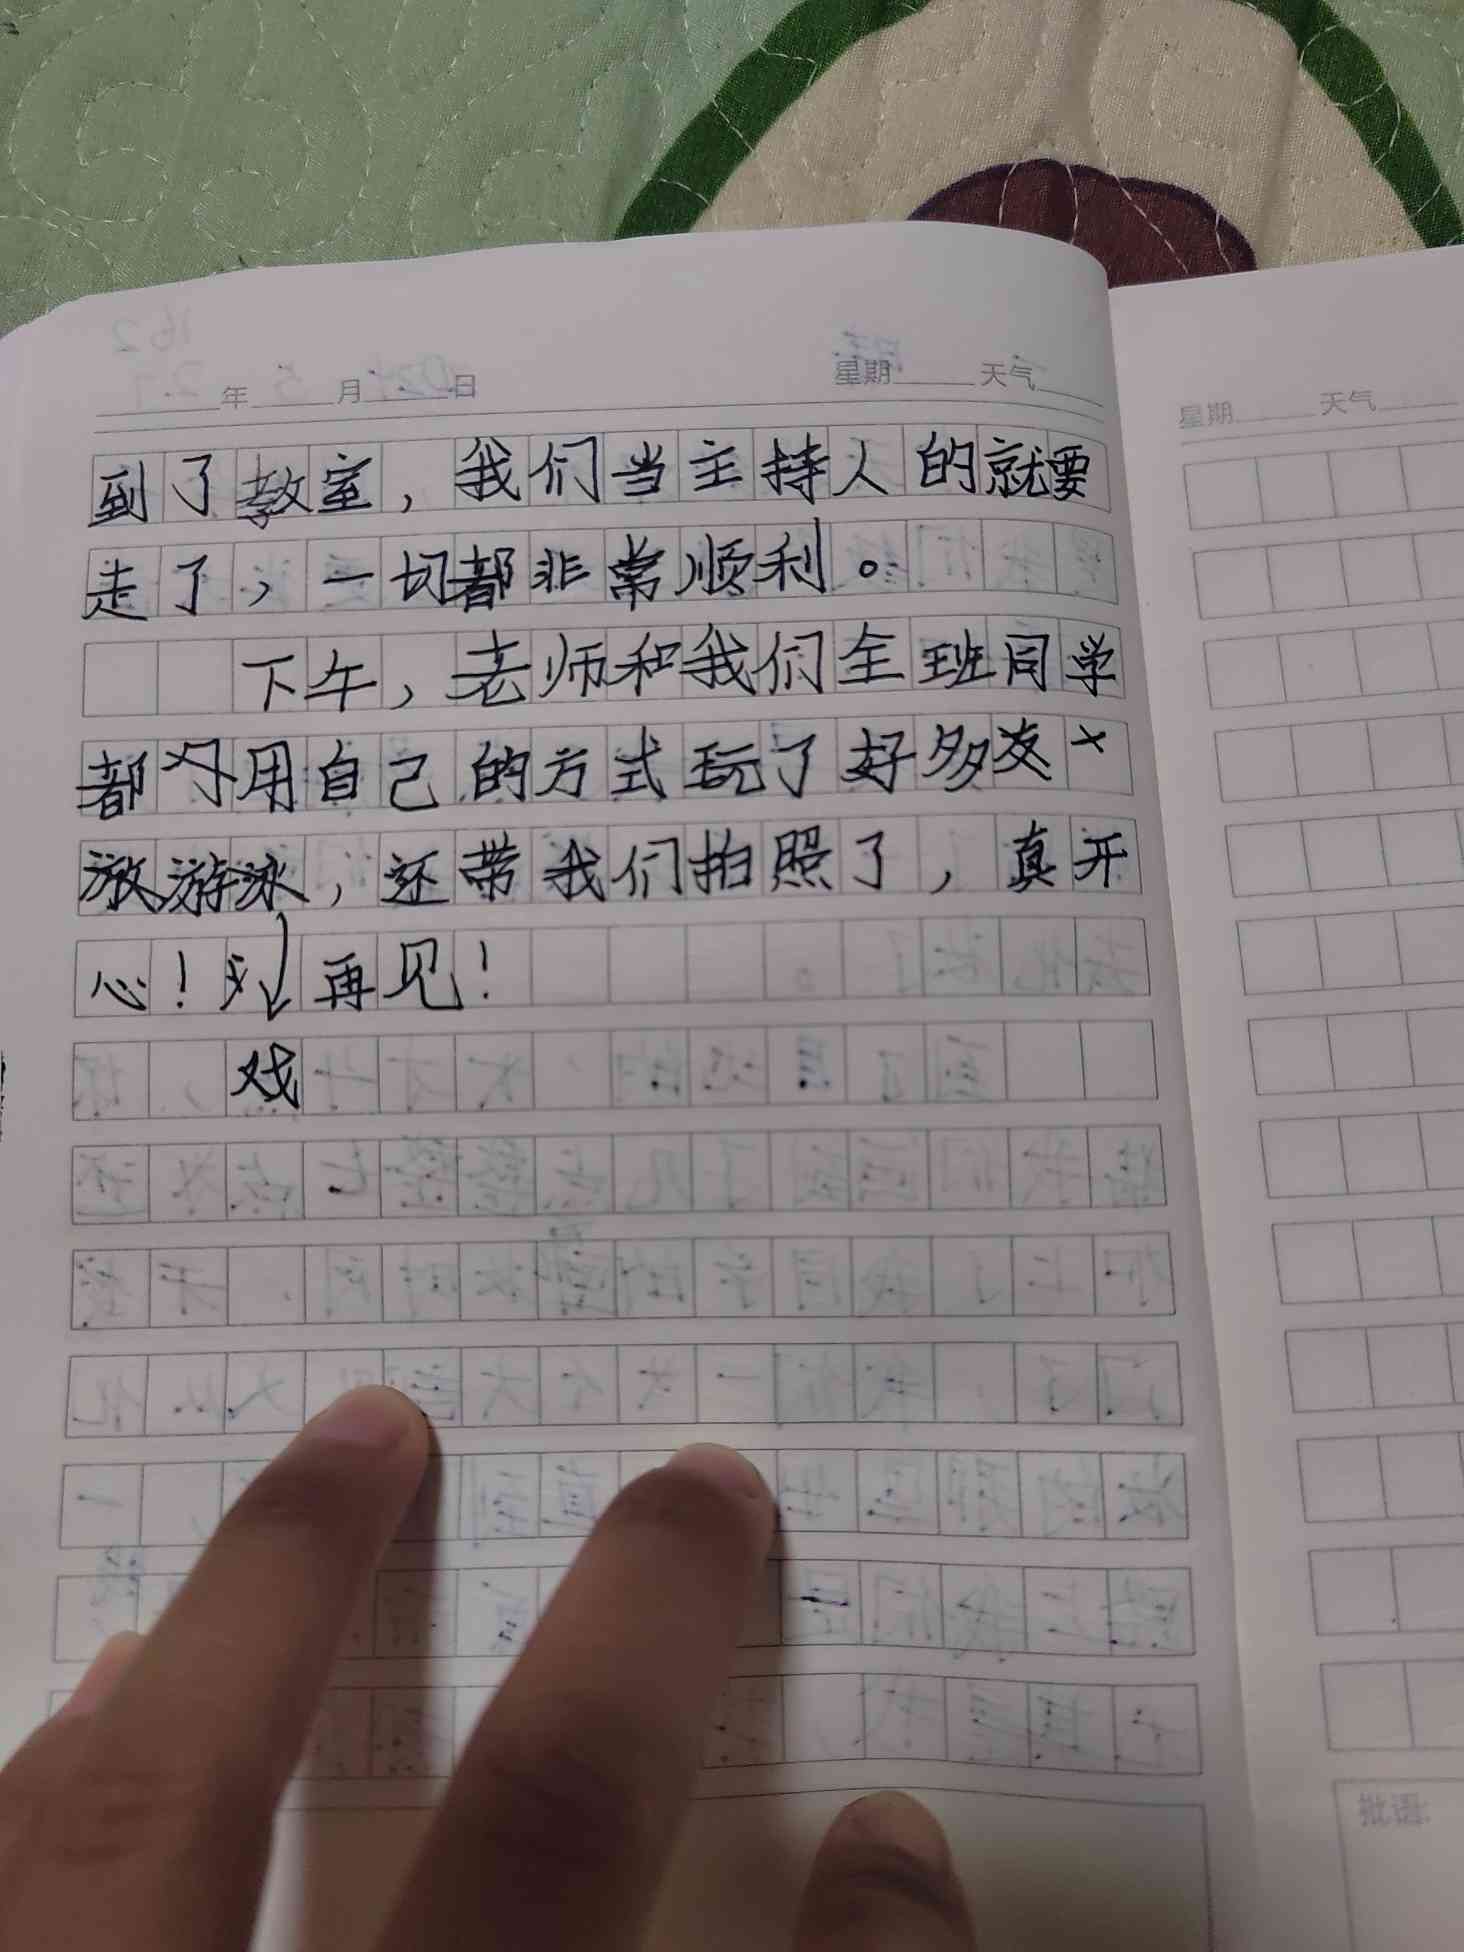 年 月 日 星期 天气
星期 天气
到了教室，我们当主持人的就要
走了，一切都非常顺利。
下午，老师和我们全班同学
都用自己的方式玩了好多
游，还带我们拍照了，真开
心！再见！
戏
批语: